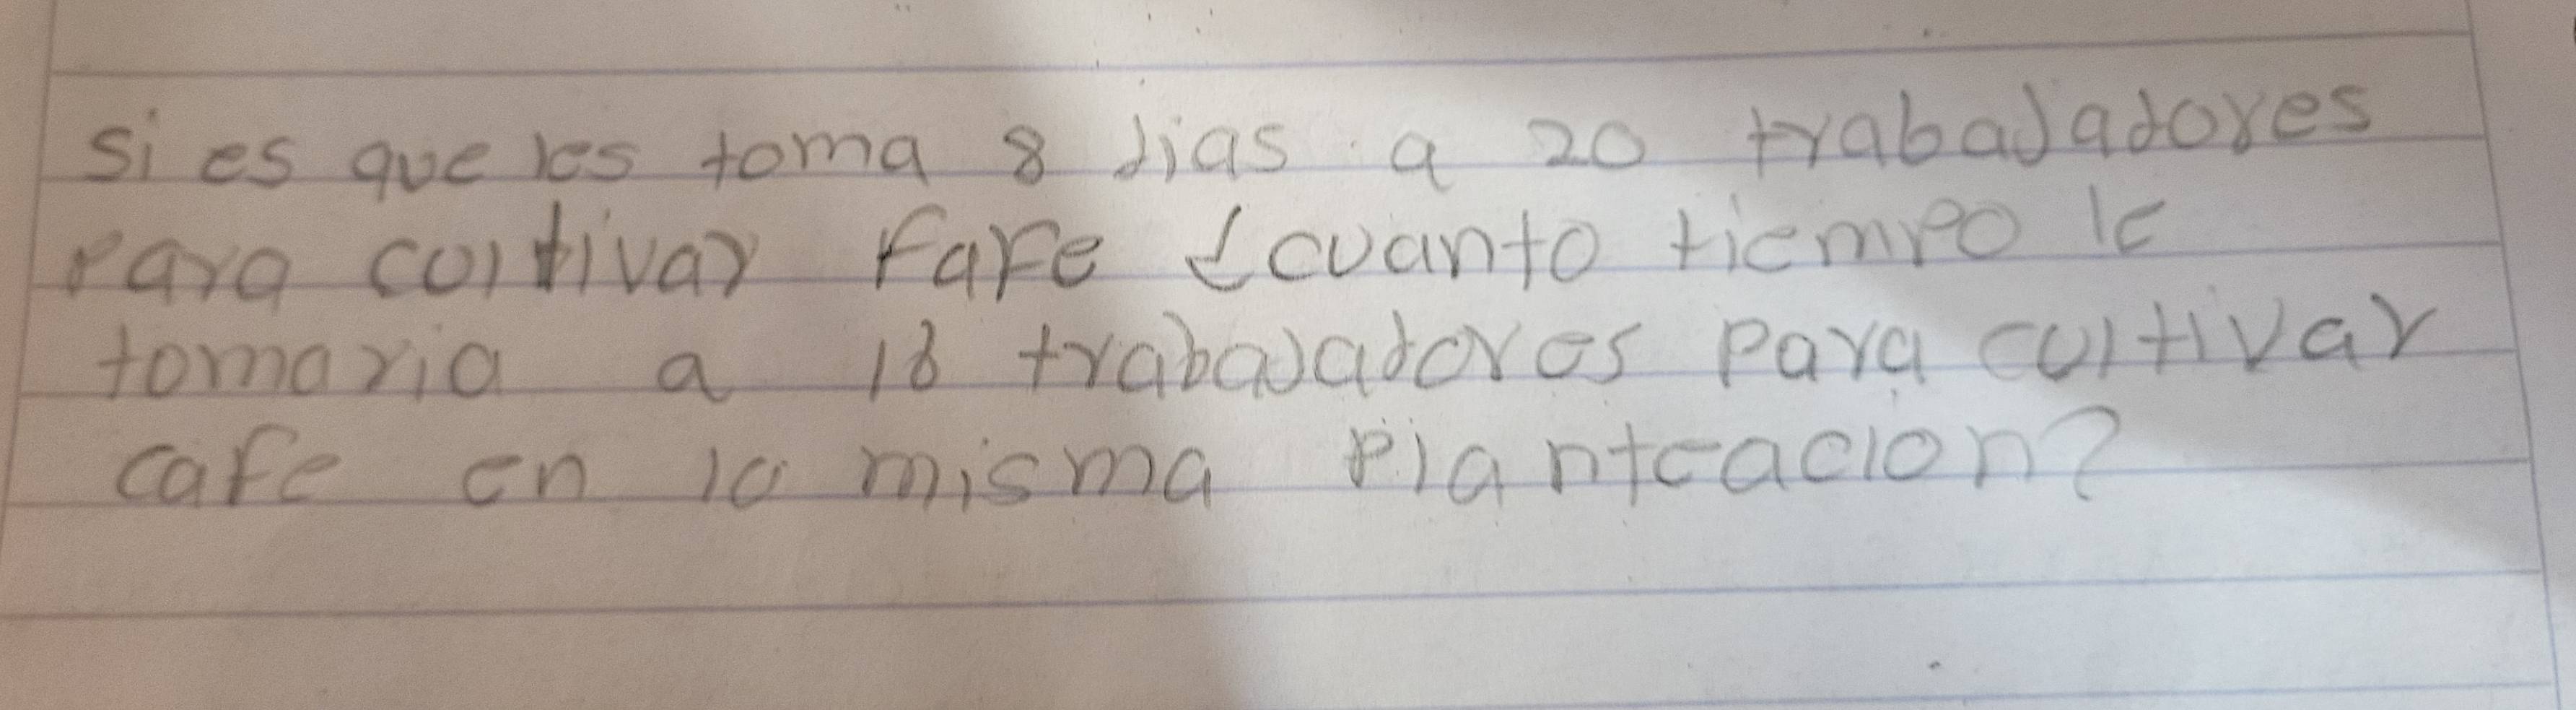 si es que les toma 8 dias a 20 trabajadores
para cultivar fafe ¿cuanto tiempo le
tomaria a 18 trabajadores para cultivar
cafe en la misma planteacion?